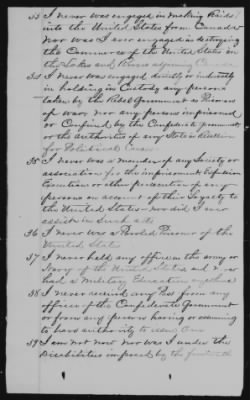 33 I never was engaged in making Raids
into the United States from Canada
nor was I ever engaged in destroying
the Commerce of the United States on
the Lakes and Rivers adjoining Canada
34 I never was engaged directly or indirectly
in holding in Custody any persons
taken by the Rebel Government as Prisoners
of war, nor any persons imprisoned
or Confined by the Confederate government
or the authorities of any State in Rebellion
for Political Causes
35 I never was a member of any Society or
association for the imprisonment Expulsion
Execution or other persecution of any
persons on account of their Loyalty to
the United States nor did I ever
assist in such acts
36 I never was a Paroled Prisoner of the
United States
37 I never held any office in the army or
Navy of the United States and never
had a Military Education
38 I never received any Pass from any
officer of the Confederate Government
or from any person having or assuming
to have authority to issue One
39 I am not now nor was I under the
Disabilities imposed by the fourteenth